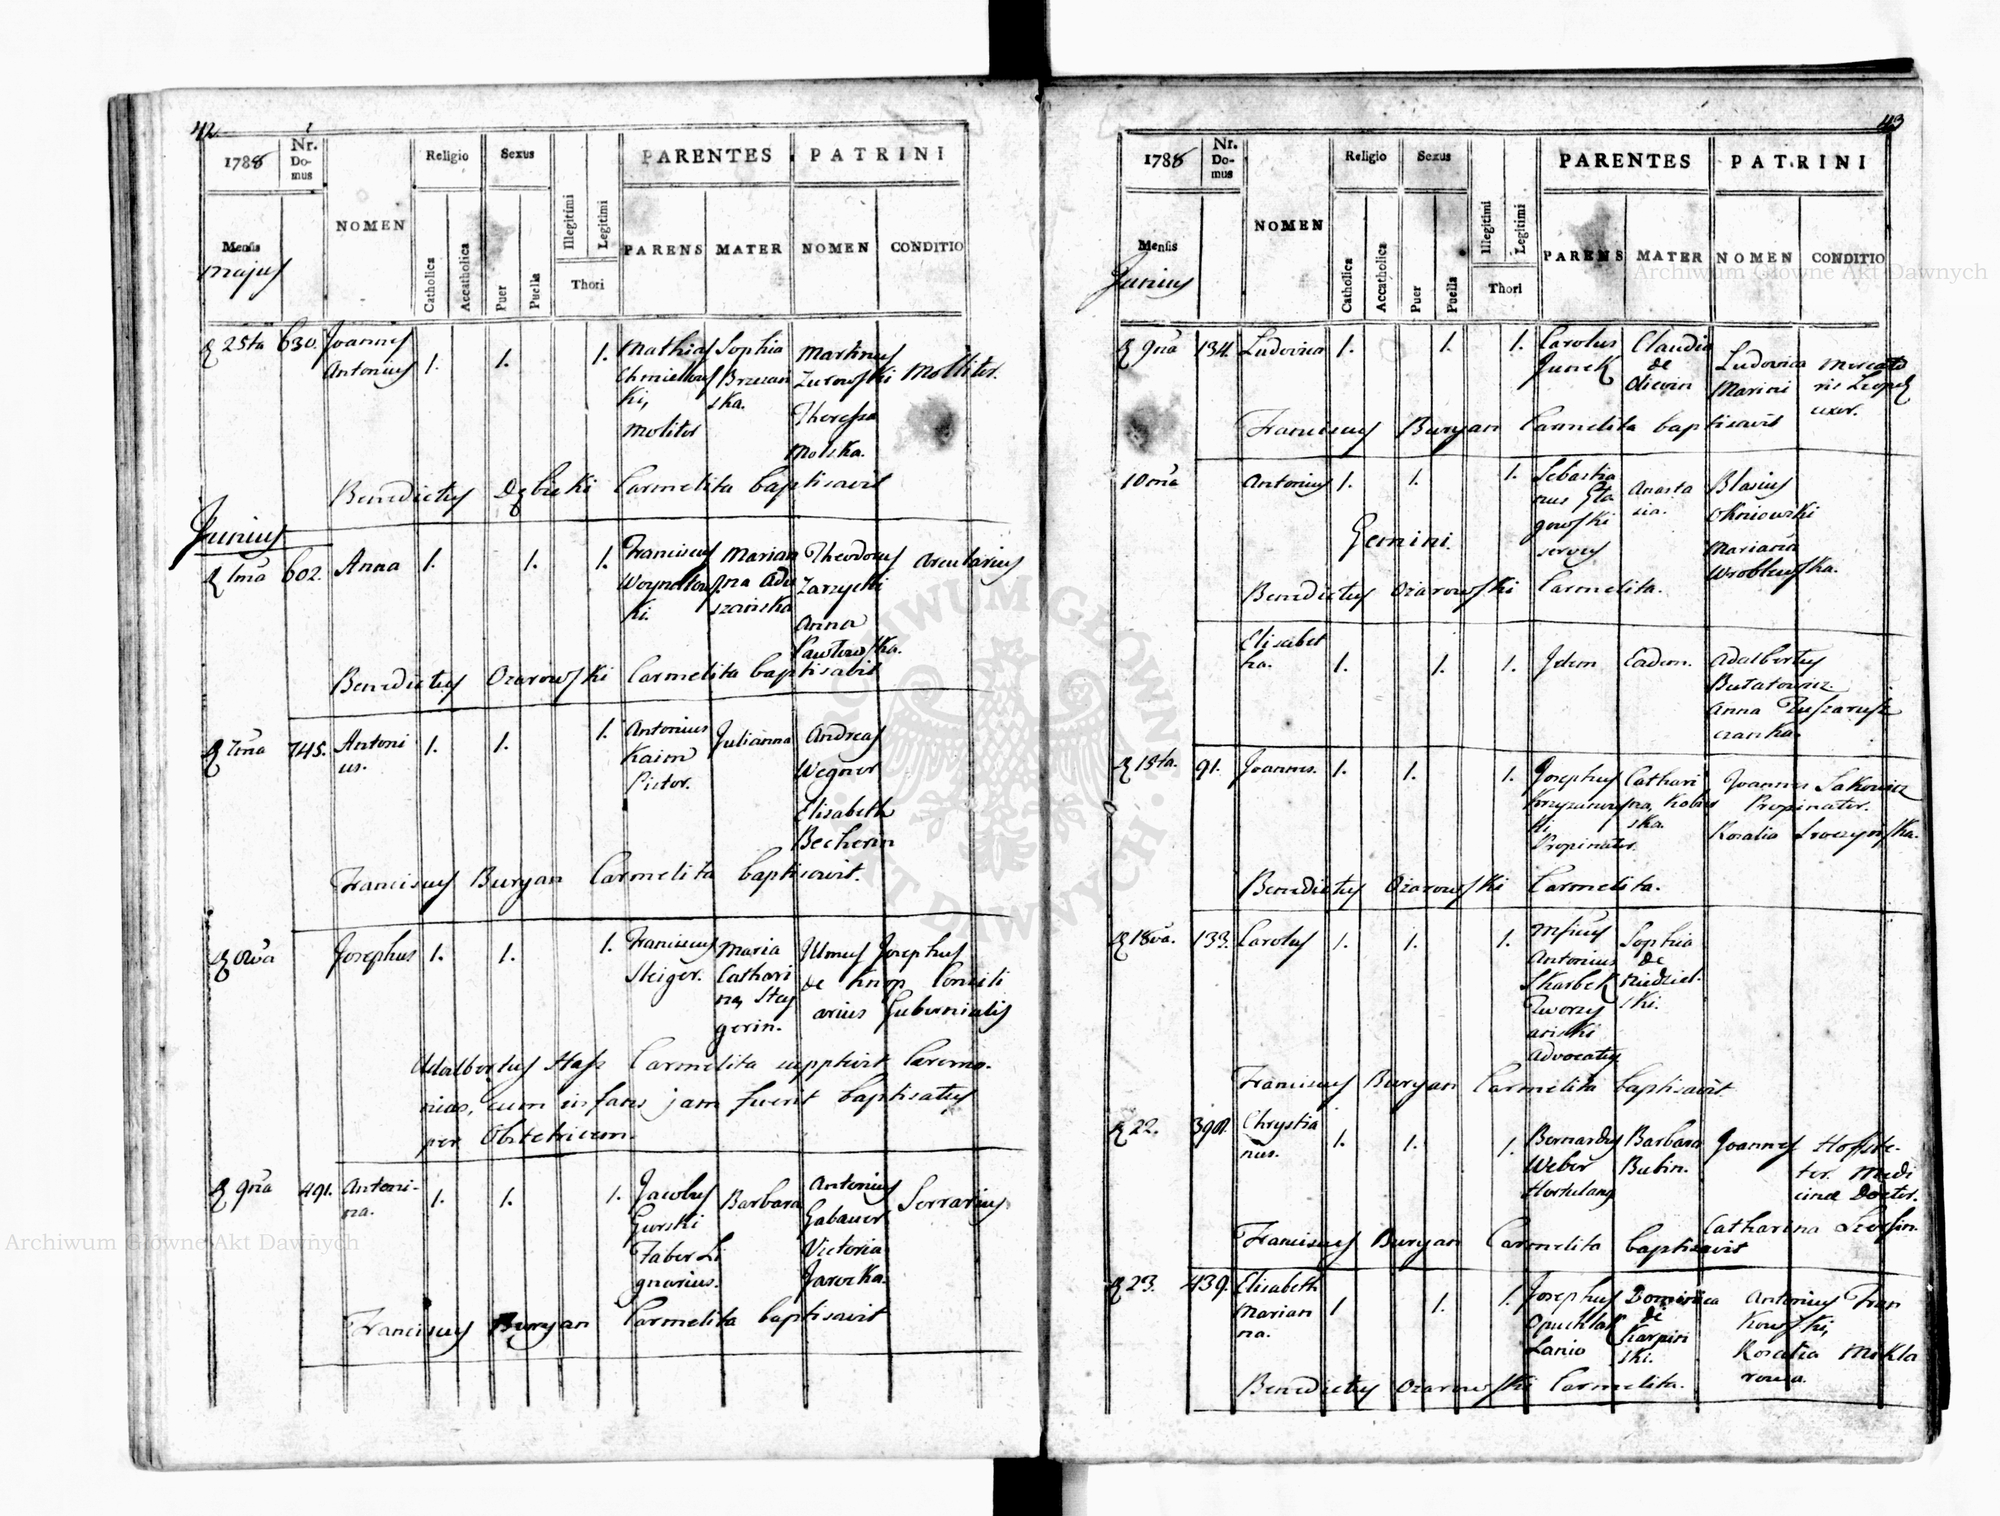 42
1788
Nr. Domus
NOMEN
Religio
Sexus
PARENTES
PATRINI
Mensis
Majus
Catholica
Accatholica
Puer
Puella
Illegitimi
Legitimi
Thori
PARENS
MATER
NOMEN
CONDITIO
25ta 630. Joannes Antonius 1. 1. 1.
Mathias
Molitor
Sophia
Brzezań
ska.
Martinus
Zurowski
Theressa
Molska.
Mollitor.
Benedictus Carmelita baptisavit
Junius
1ma 602. Anna 1. 1. 1.
Franciscus
Woynakows
ki.
Marian
na
Theodorus
Zarzycki
Anna
Pawlowska.
arcularius
Benedictus Ozarowski Carmelita baptisavit
7ma 745. Antoni
us. 1. 1. 1.
Antonius
Kaim
Pictor.
Julianna
Andreas
Wegner
Elisabeth
Becherin
Franciscus Buryan Carmelita baptisavit.
8va Josephus 1. 1. 1.
Franciscus
Steiger.
Maria
Cathari
na, Stey
gerin.
Illmus Josephus
de Knop Consili
arius Gubernialis
Adalbertus Hass Carmelita supplevit Caeremo-
nias, cum infans jam fuerit baptisatus
per Obstetricem.
9na 491. Antoni-
na. 1. 1. 1.
Jacobus
Gurski
Faber Li
gnarius.
Barbara
Antonius
Gabauer
Victoria
Jarocka.
Serrarius
Franciscus Buryan Carmelita baptisavit
43
1788
Nr. Domus
NOMEN
Religio
Sexus
PARENTES
PATRINI
Mensis
Junius
Catholica
Accatholica
Puer
Puella
Illegitimi
Legitimi
Thori
PARENS
MATER
NOMEN
CONDITIO
9na 134. Ludovica 1. 1. 1.
Carolus
Junek
Claudia
de
Ludovica
Marini
Mercato
ris Leopol
uxor.
Franciscus Buryan Carmelita baptisavit
10ma Antonius 1. 1. 1.
Sebastia
nus Gła
gowski
servus
Anasta
sia.
Blasius
Okniowski
Marianna
Wroblewska.
Gemini.
Benedictus Ozarowski Carmelita.
Elisabet
ha. 1. 1. 1.
Idem Eadem.
Adalbertus
Bułatowicz
Anna
czanka.
15ta. 91. Joannes. 1. 1. 1.
Josephus
Krzyzanows
ki,
Propinator.
Cathari
na, Kobier
ska.
Joannes Sakowicz
Propinator.
Rozalia
Benedictus Ozarowski Carmelita.
18va. 133. Carolus 1. 1. 1.
Antonius
Skarbek
Tworzy
ański
Advocatus
Sophia
de
Niedziel
ski.
Franciscus Buryan Carmelita baptisavit.
22. 398. Chrystia
nus. 1. 1. 1.
Bernardus
Weber
Hortulanus
Barbara
Bubin.
Joannes Hoffste-
ter. Medi
cinae Doctor.
Catharina
Franciscus Buryan Carmelita baptisavit
23. 439. Elisabeth
Marian
na. 1 1. 1.
Josephus
Opuchlak
Lanio
Dominica
de
Karpin
ski.
Antonius Fran
kowski,
Rozalia Mikla
rowa.
Benedictus Ozarowski Carmelita.
ARCHIWUM GŁÓWNE AKT DAWNYCH
Archiwum Główne Akt Dawnych
Archiwum Główne Akt Dawnych